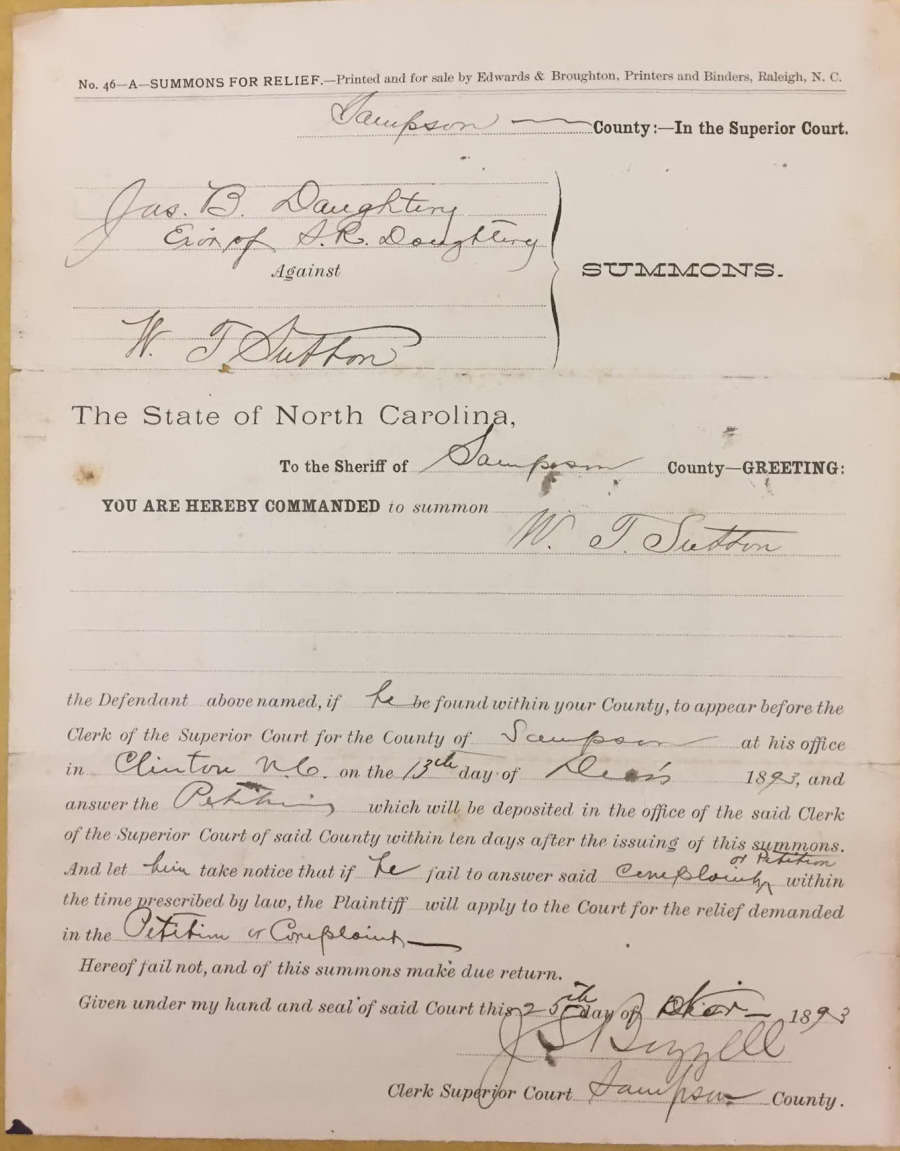 No. 46—A—SUMMONS FOR RELIEF.—Printed and for sale by Edwards & Broughton, Printers and Binders, Raleigh, N. C.
Sampson County:—In the Superior Court.
Jas. B. Daughtery
of S. R. Daughtery
Against
SUMMONS.
W. T. Sutton
The State of North Carolina,
To the Sheriff of Sampson County—GREETING:
YOU ARE HEREBY COMMANDED to summon
W. T. Sutton
the Defendant above named, if he be found within your County, to appear before the
Clerk of the Superior Court for the County of Sampson at his office
in Clinton N.C. on the 13th day of 1893, and
answer the Petition which will be deposited in the office of the said Clerk
of the Superior Court of said County within ten days after the issuing of this summons.
or Petition
And let him take notice that if he fail to answer said Complaint within
the time prescribed by law, the Plaintiff will apply to the Court for the relief demanded
in the Petition or Complaint
Hereof fail not, and of this summons make due return.
Given under my hand and seal of said Court this 25th day of 1893
J S Bizzell
Clerk Superior Court Sampson County.